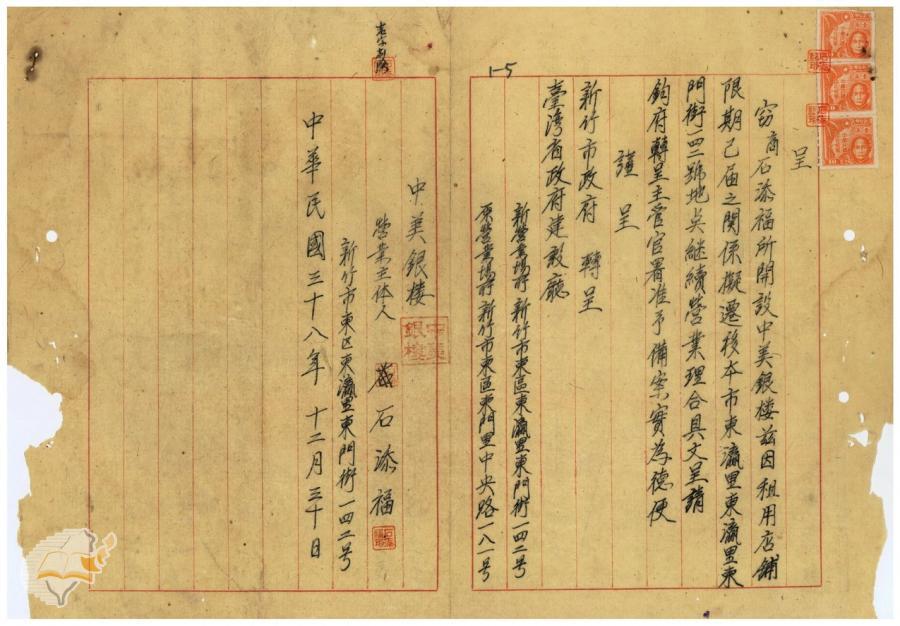 呈
窃商石添福所開設中美銀楼茲因租用店鋪
限期已届之関係擬遷移本市東瀛里東瀛里東
門街一四二號地点継續營業理合具文呈請
鈞府轉呈主管官署准予備案實為德便
謹呈
新竹市政府 轉呈
臺灣省政府建設廳
新營業場所 新竹市東區東瀛里東門街一四二号
原營業場所 新竹市東區東門里中央路一八一号
1-5
中美銀楼
中美銀樓
營業主体人 石添福
新竹市東区東瀛里東門街一四二号
中華民國三十八年 十二月三十日